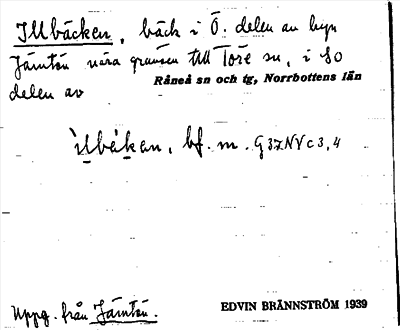 Illbäcken, bäck i Ö. delen av byn
Jämtön nära gränsen till Töre sn, i SO
delen av Råneå sn och tg, Norrbottens län
ìlbäkan, bf. m. G37NVc3,4
Uppg. från Jämtön.
EDVIN BRÄNNSTRÖM 1939